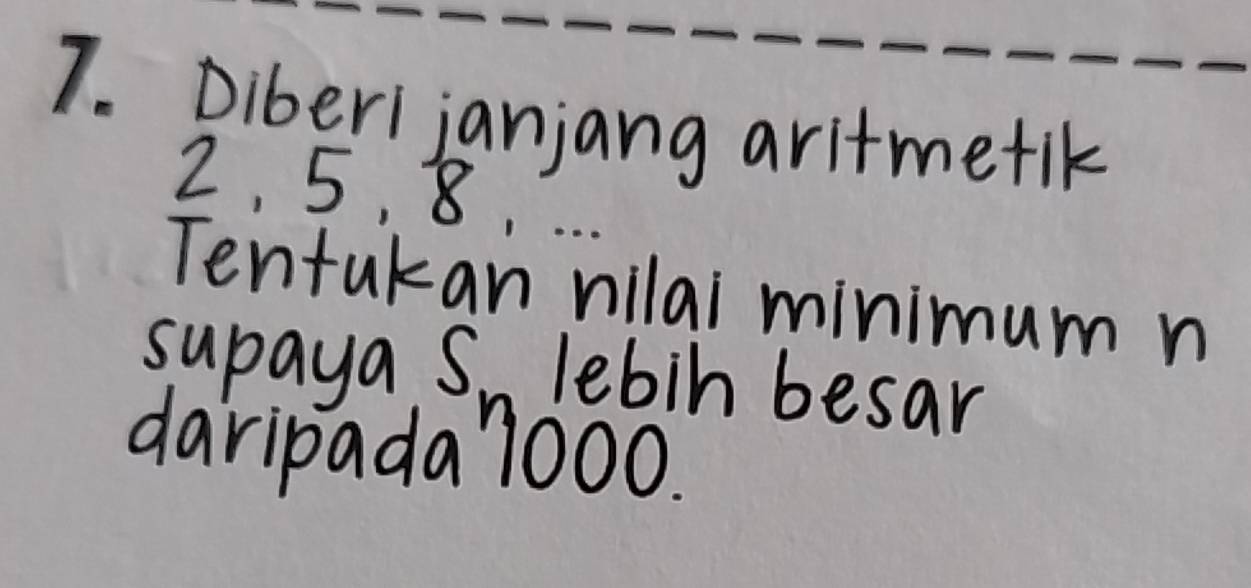 7. Diberi janjang aritmetik
2, 5, 8, ...
Tentukan nilai minimum n
supaya Sₙ lebih besar
daripada 1000.